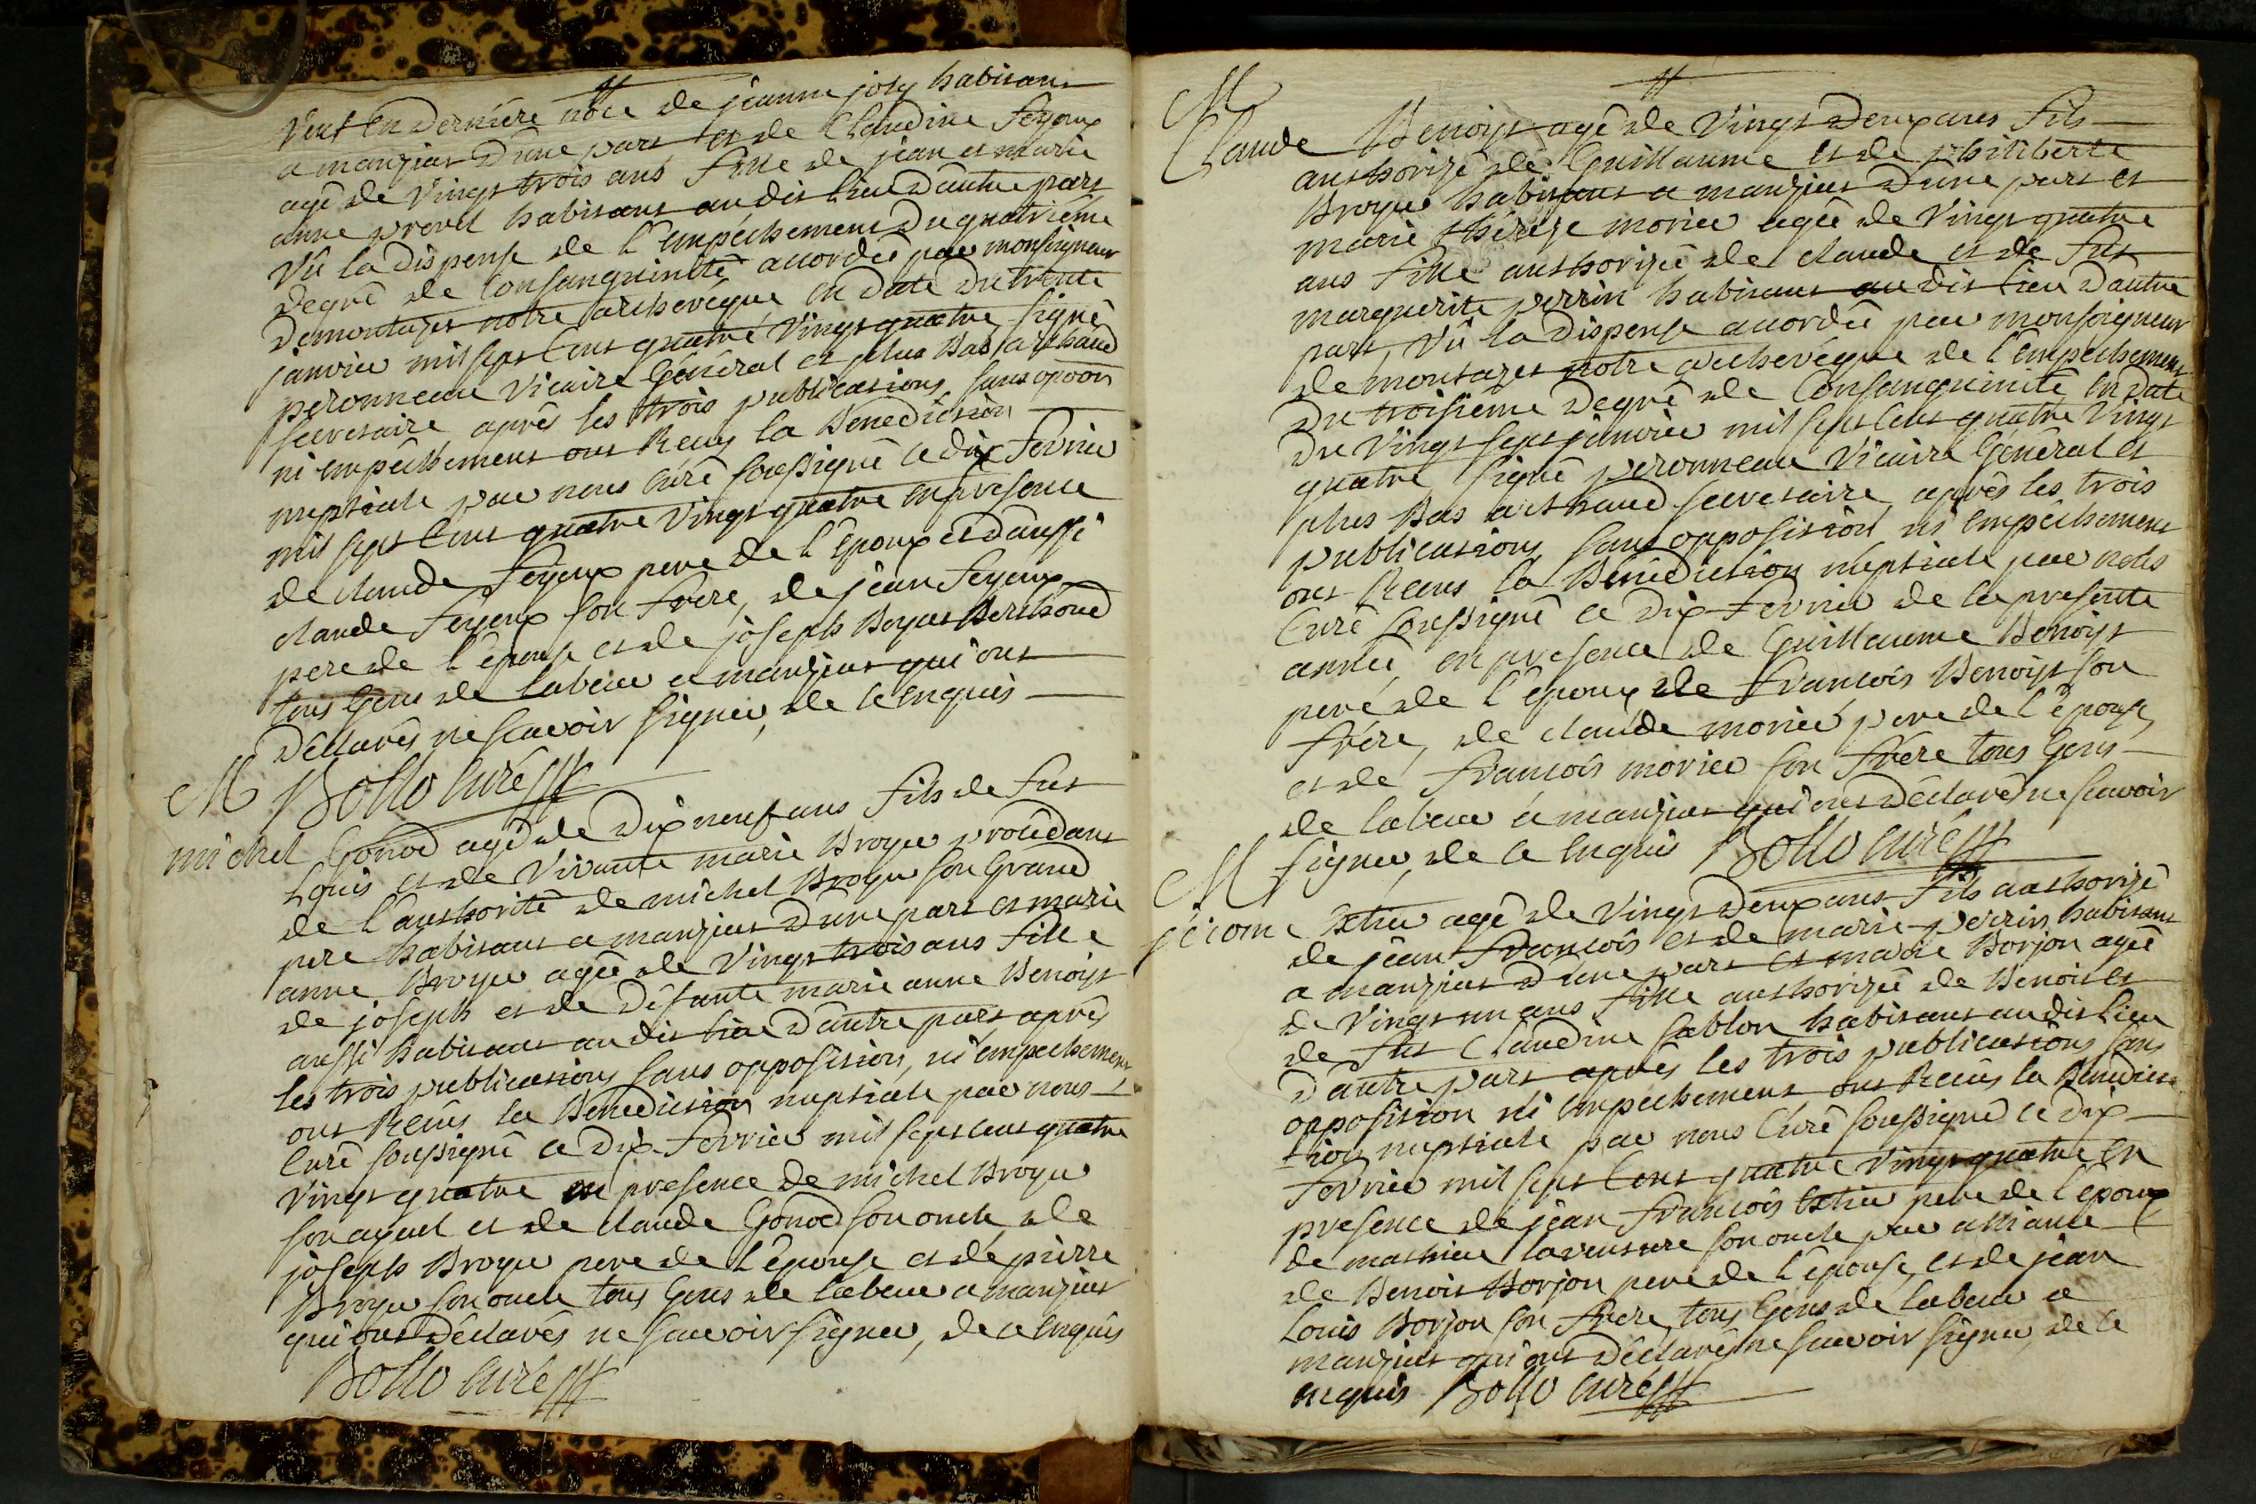 veuf en derniére nôce de jeanne joly habitans
a manziat d'une part et de Claudine feyeux
agê de vingt trois ans fille de jean et marie
anne prevel habitant au dit lieu d'autre part
Vû la dispense de l'empéchement du quatriéme
degrê de Consanguinitê accordée par monseigneur
demontazet notre archevéque en date du trente
janvier mil sept Cent quatre vingt quatre signê
peronneau vicaire Gênêral et plus bas arthaud
secretaire aprês les trois publications sans opôon
ni empêchement ont Reçus la Benediction
nuptiale par nous Curê soussignê ce dix fevrier
mil sept Cent quatre vingt quatre en presence
de claude feyeux pere de l'êpoux et d'aussi
claude feyeux son frere, de jean feyeux
pere de l'êpouse et de joseph Boyat Berthoud
tous Gens de labeur a manziat qui ont
dêclarês ne scavoir signer, de ce enquis
Bollo Curé
M
michel Gonod agê de dix neuf ans fils de fut
Louis et de vivante marie Broyer procêdant
de l'authoritê de michel Broyer son grand
pere habitant a manziat d'une part et marie
anne Broyer agêe de vingt trois ans fille
de joseph et de dêfunte marie anne Benoist
aussi habitant au dit lieu d'autre part aprês
les trois publications sans opposition, ni empechement
ont Reçus la Benediction nuptiale par nous
Curê soussignê ce dix fevrier mil sept cent quatre
vingt quatre en presence de michel Broyer
son ayeul et de claude Gonod son oncle de
joseph Broyer pere de l'êpouse et de pierre
Broyer son oncle tous Gens de labeur a manziat
qui ont dêclarês ne scavoir signer, de ce enquis
Bollo Curé
M
Claude Benoist agê de vingt deux ans fils
authorizê de Guillaume et de philiberte
Broyer habitant a manziat d'une part et
marie thêreze morier agêe de vingt quatre
ans fille authorizêe de claude et de fut
marguerite perrin habitant au dit lieu d'autre
part, vû la dispense accordêe par monseigneur
de montazet notre archevéque de l'empechement
du troisiéme degrê de Consanguinitê en date
du vingt sept janvier mil sept Cent quatre vingt
quatre signê peronneau vicaire Gênêral et
plus bas arthaud secretaire, aprês les trois
publications sans opposition ni empêchement
ont Recus la Bênêdiction nuptiale par nous
Curê soussignê ce dix fevrier de la presente
annêe, en presence de Guillaume Benoist
peré de l'êpoux de francois Benoist son
frére, de claude morier pere de l'êpouse
et de francois morier son frére tous Gens
de labeur â manziat qui ont dêclarês ne scavoir
signer, de ce enquis Bollo Curé
M
jêrome agê de vingt deux ans fils authorizê
de jean francois et de marie perrin habitant
a manziat d'une part et marie Borjon agêe
de vingt un ans fille authorizêe de Benoit et
de fut Claudine sablon habitant au dit lieu
d'autre part aprês les trois publications sans
opposition ni empechement ont Recus la Benedic
tion nuptiale par nous Curê soussignê ce dix
fevrier mil sept Cent quatre vingt quatre en
presence de jean francois pere de l'êpoux
de mathieu laventure son oncle par alliance
de Benoit Borjon pere de l'êpouse, et de jean
Louis Borjon son frere, tous Gens de labeur a
manziat qui ont dêclarês ne scavoir signer, de ce
enquis Bollo Curé